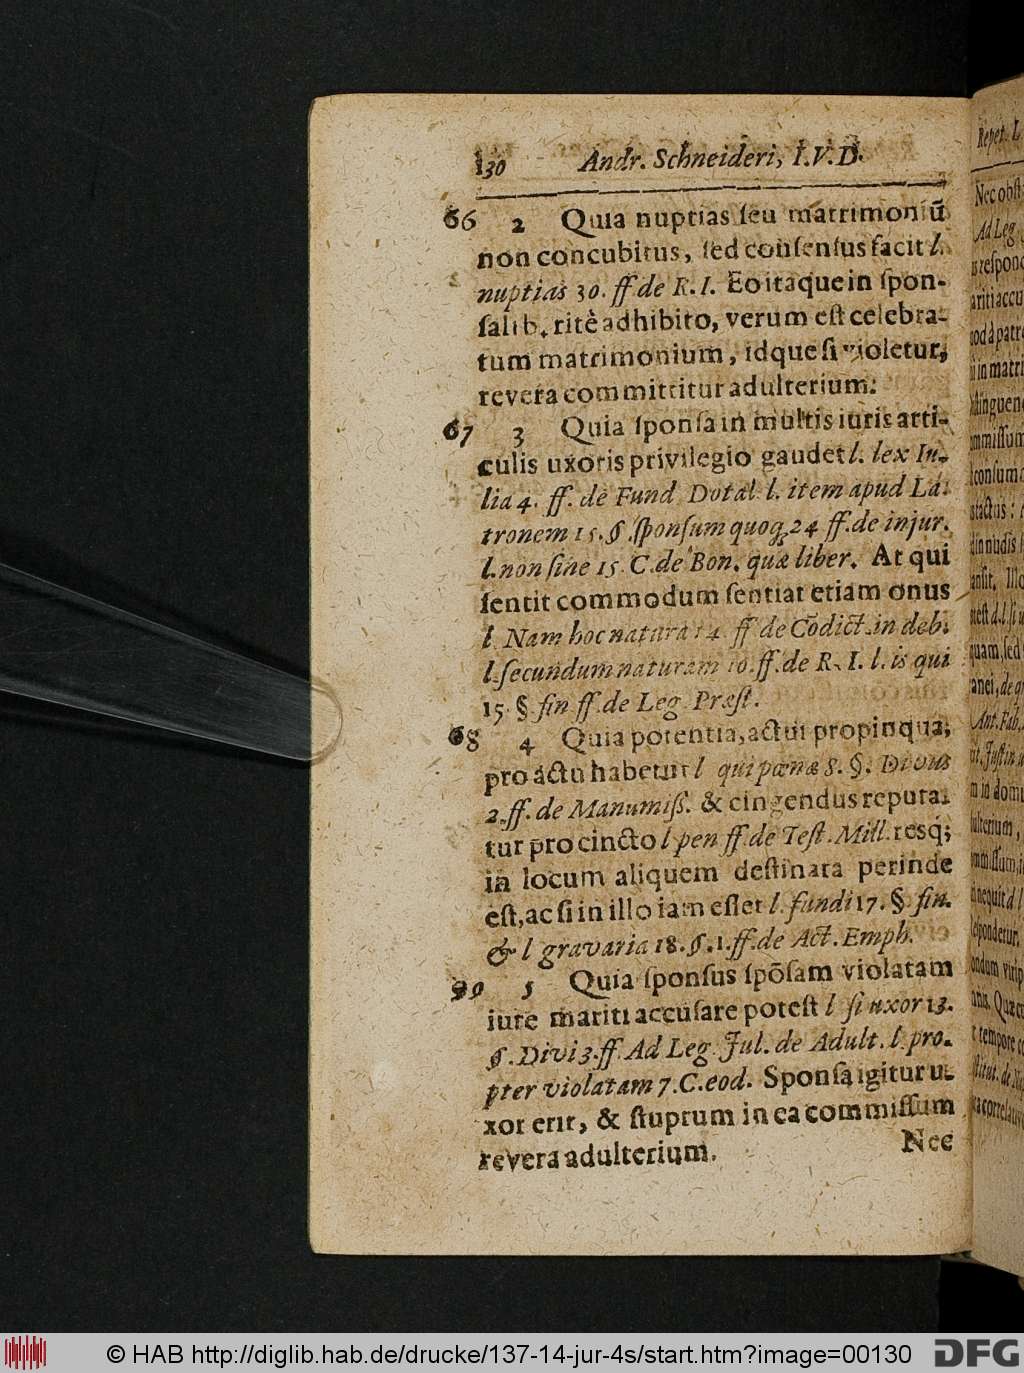 130 Andr. Schneideri, I.V.D.
66 2 Quia nuptias ſeu matrimoniū
non concubitus, ſed conſenſus facit l.
nuptias 30. ff. de R. I. Eo itaque in ſpon-
ſalib. ritè adhibito, verum eſt celebra-
tum matrimonium, idque ſi violetur,
revera committitur adulterium.
67 3 Quia ſponſa in multis iuris arti-
culis uxoris privilegio gaudet l. lex Iu-
lia 4. ff. de Fund Dotal. l. item apud La-
tronem 15. §. ſponſum quoq; 24 ff. de injur.
l. non ſine 15. C. de Bon. quæ liber. At qui
ſentit commodum ſentiat etiam onus
l. Nam hoc natura 14. ff de Cōdict. in deb.
l. ſecundum naturam 10. ff. de R. I. l. is qui
15. §. fin ff. de Leg. Præſt.
68 4 Quia potentia, actui propinqua,
pro actu habetur l qui pœnæ 8. §. Divus
2. ff. de Manumiſſ. & cingendus reputa-
tur pro cincto l pen ff. de Teſt. Mill. resq;
in locum aliquem deſtinata perinde
eſt, ac ſi in illo iam eſſet l. fundi 17. § fin.
& l gravaria 18. §. 1. ff. de Act. Emph.
99 5 Quia ſponſus ſpōſam violatam
iure mariti accuſare poteſt l ſi uxor 13.
§. Divi 3. ff. Ad Leg. Jul. de Adult. l. pro-
pter violatam 7. C. eod. Sponſa igitur u-
xor erit, & ſtuprum in ea commiſſum
revera adulterium.
Nec
Repet. L
Nec obſt
Ad Leg
ariti accu
in matri
© HAB http://diglib.hab.de/drucke/137-14-jur-4s/start.htm?image=00130
DFG